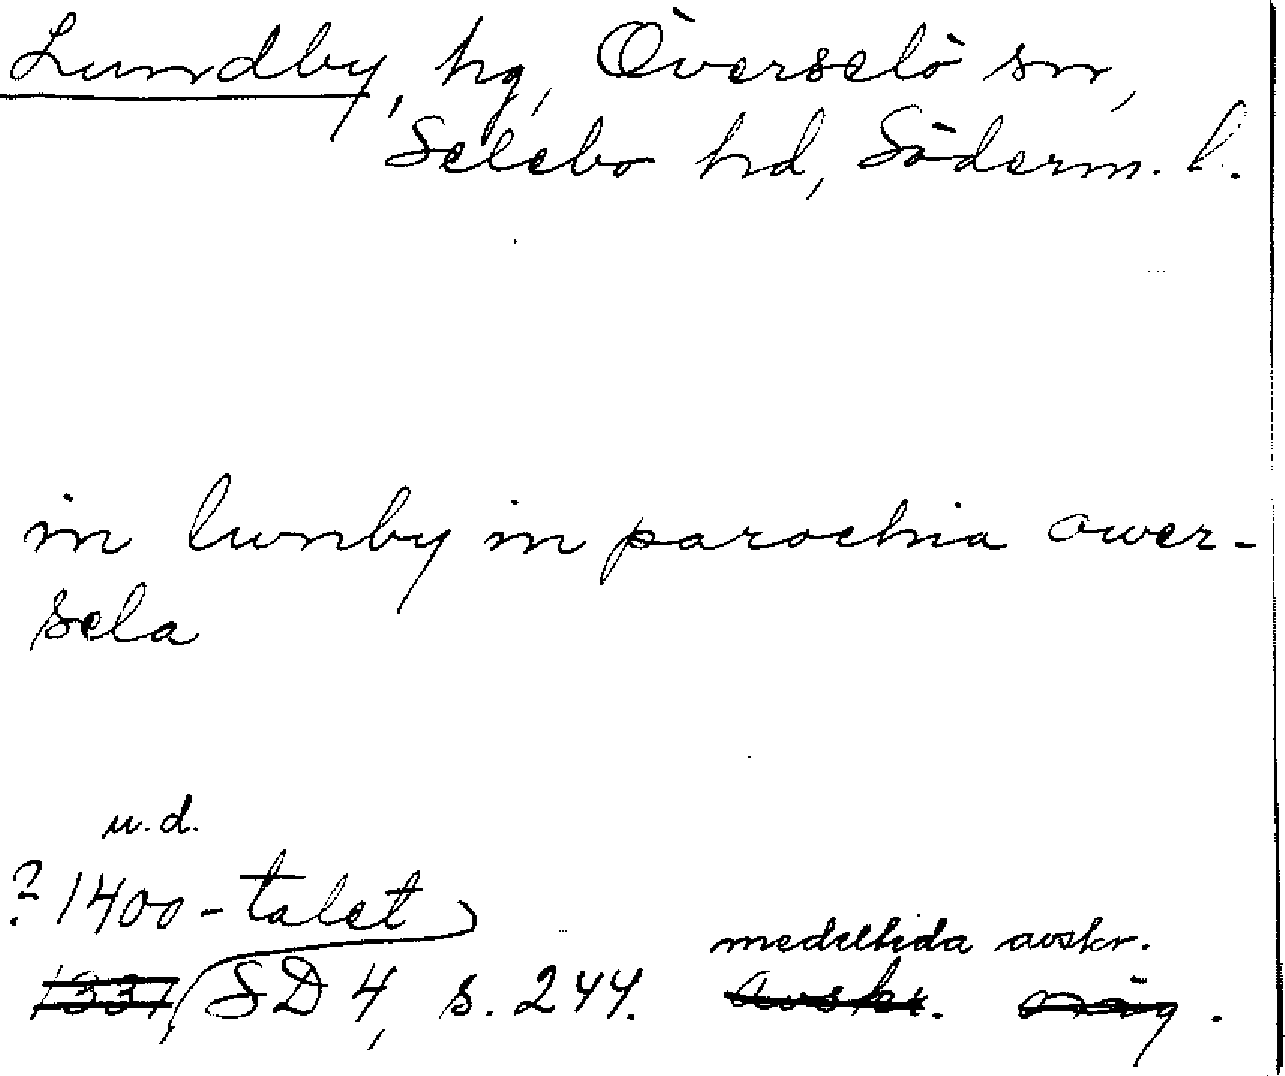 Lundby, hg, Överselö sn,
Selebo hd, Söderm. l.
in lunby in parochia ower-
sela
u.d.
? 1400-talet
medeltida avskr.
1331, SD 4, s. 244. Avskr.